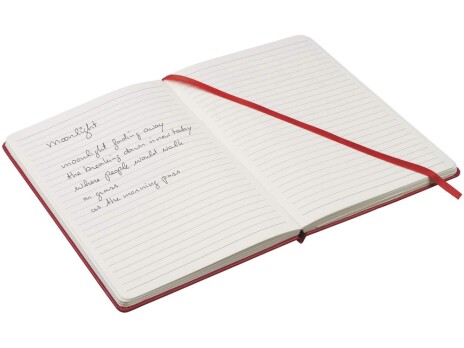 Moonlight
moonlight fading away
the breaking dawn in new today
where people would walk
on grass
as the morning pass